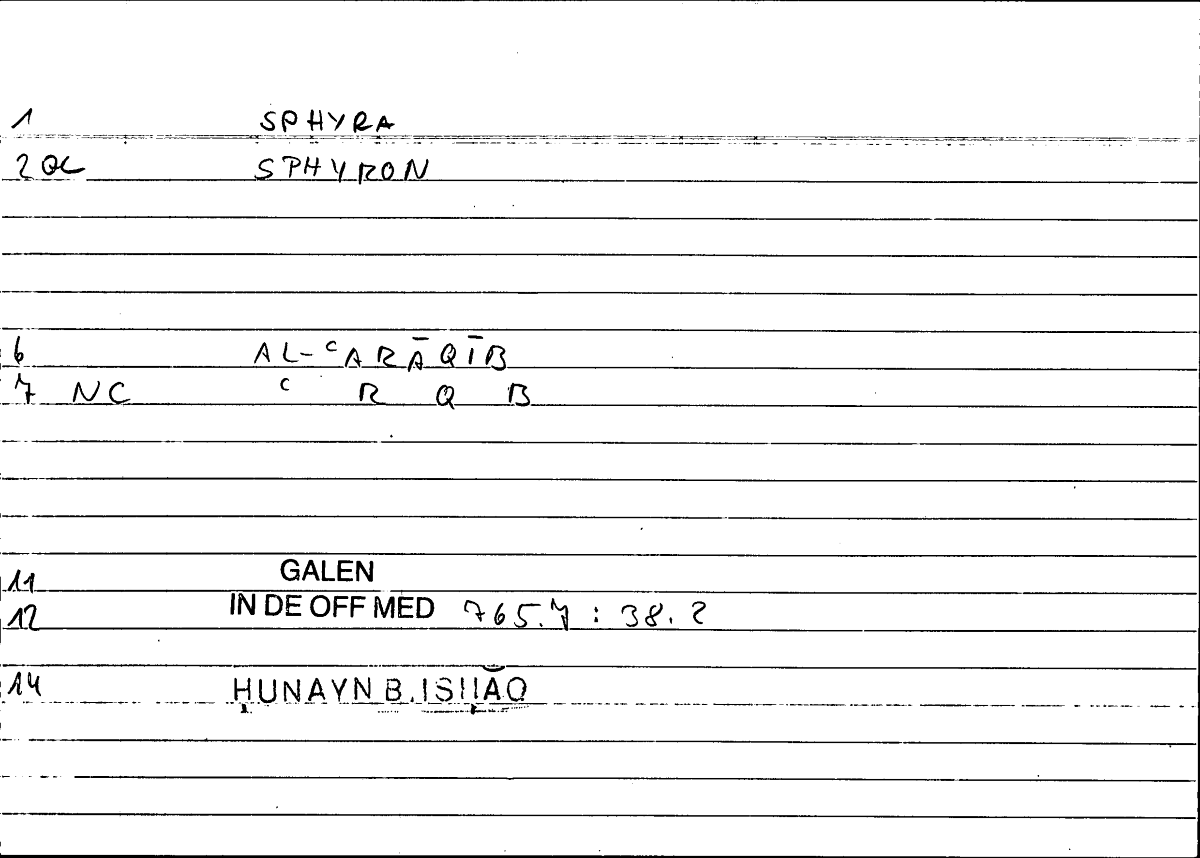 1 SPHYRA
2 QL SPHYRON
6 AL-ᶜARĀQĪB
7 NC ᶜ R Q B
11 GALEN
12 IN DE OFF MED 765.7 : 38.2
14 ḤUNAYN B. ISḤĀQ